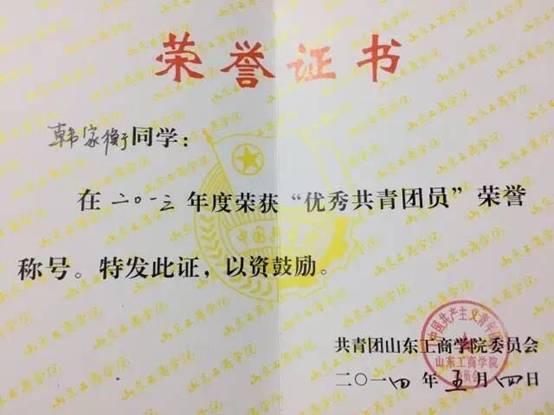 荣誉证书
韩家衡同学：
在二〇一三年度荣获“优秀共青团员”荣誉
称号。特发此证，以资鼓励。
共青团山东工商学院委员会
二〇一四年五月四日